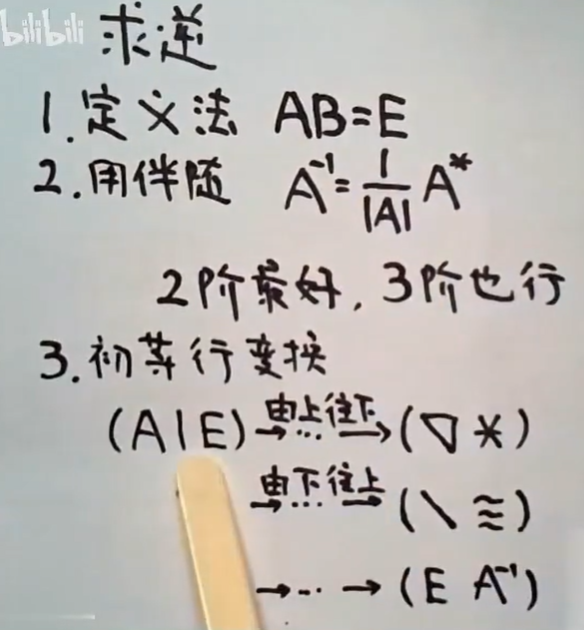 bilibili 求逆
1.定义法 AB=E
2.用伴随 A⁻¹=1/|A| A*
2阶最好,3阶也行
3.初等行变换
(A|E) 由上往下→…→(▽ *)
由下往上→…→(\ ≋)
→…→(E A⁻¹)